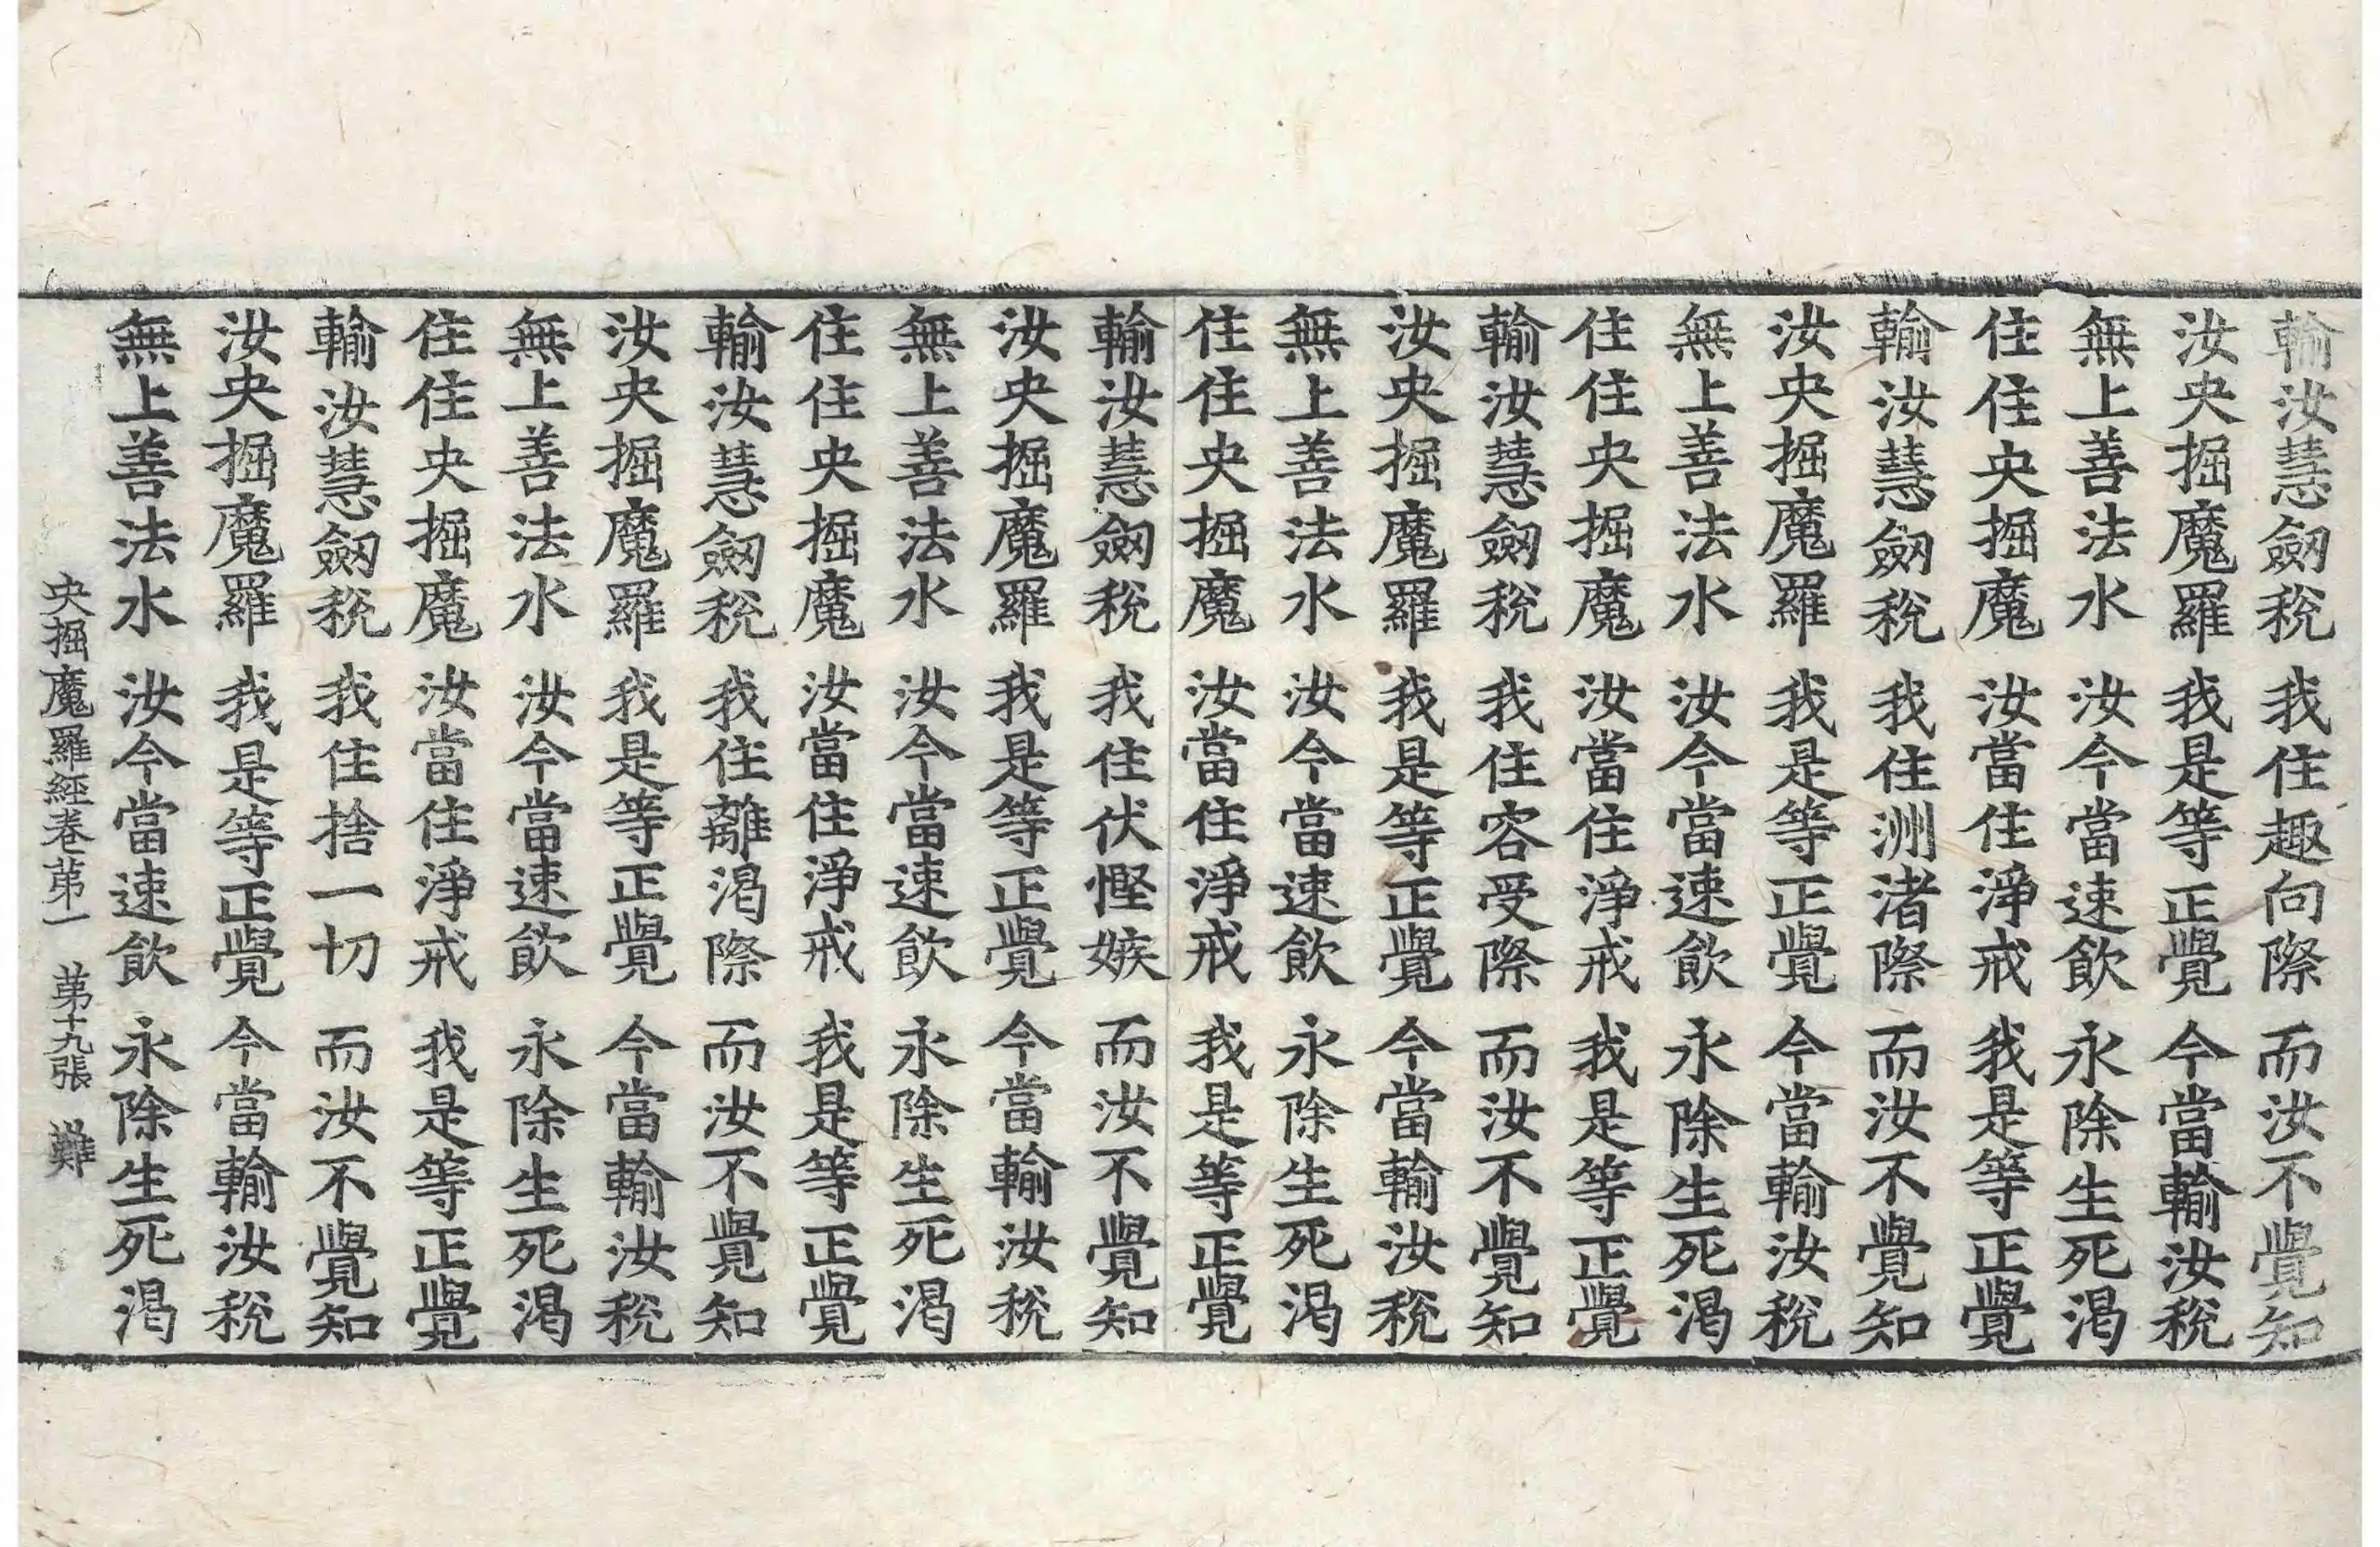 輸汝慧劒稅 我住趣向際 而汝不覺知
汝央掘魔羅 我是等正覺 今當輸汝稅
無上善法水 汝今當速飲 永除生死渴
住住央掘魔 汝當住淨戒 我是等正覺
輸汝慧劒稅 我住洲渚際 而汝不覺知
汝央掘魔羅 我是等正覺 今當輸汝稅
無上善法水 汝今當速飲 永除生死渴
住住央掘魔 汝當住淨戒 我是等正覺
輸汝慧劒稅 我住容受際 而汝不覺知
汝央掘魔羅 我是等正覺 今當輸汝稅
無上善法水 汝今當速飲 永除生死渴
住住央掘魔 汝當住淨戒 我是等正覺
輸汝慧劒稅 我住伏慳嫉 而汝不覺知
汝央掘魔羅 我是等正覺 今當輸汝稅
無上善法水 汝今當速飲 永除生死渴
住住央掘魔 汝當住淨戒 我是等正覺
輸汝慧劒稅 我住離渴際 而汝不覺知
汝央掘魔羅 我是等正覺 今當輸汝稅
無上善法水 汝今當速飲 永除生死渴
住住央掘魔 汝當住淨戒 我是等正覺
輸汝慧劒稅 我住捨一切 而汝不覺知
汝央掘魔羅 我是等正覺 今當輸汝稅
無上善法水 汝今當速飲 永除生死渴
央掘魔羅經卷苐一 苐十九張 難